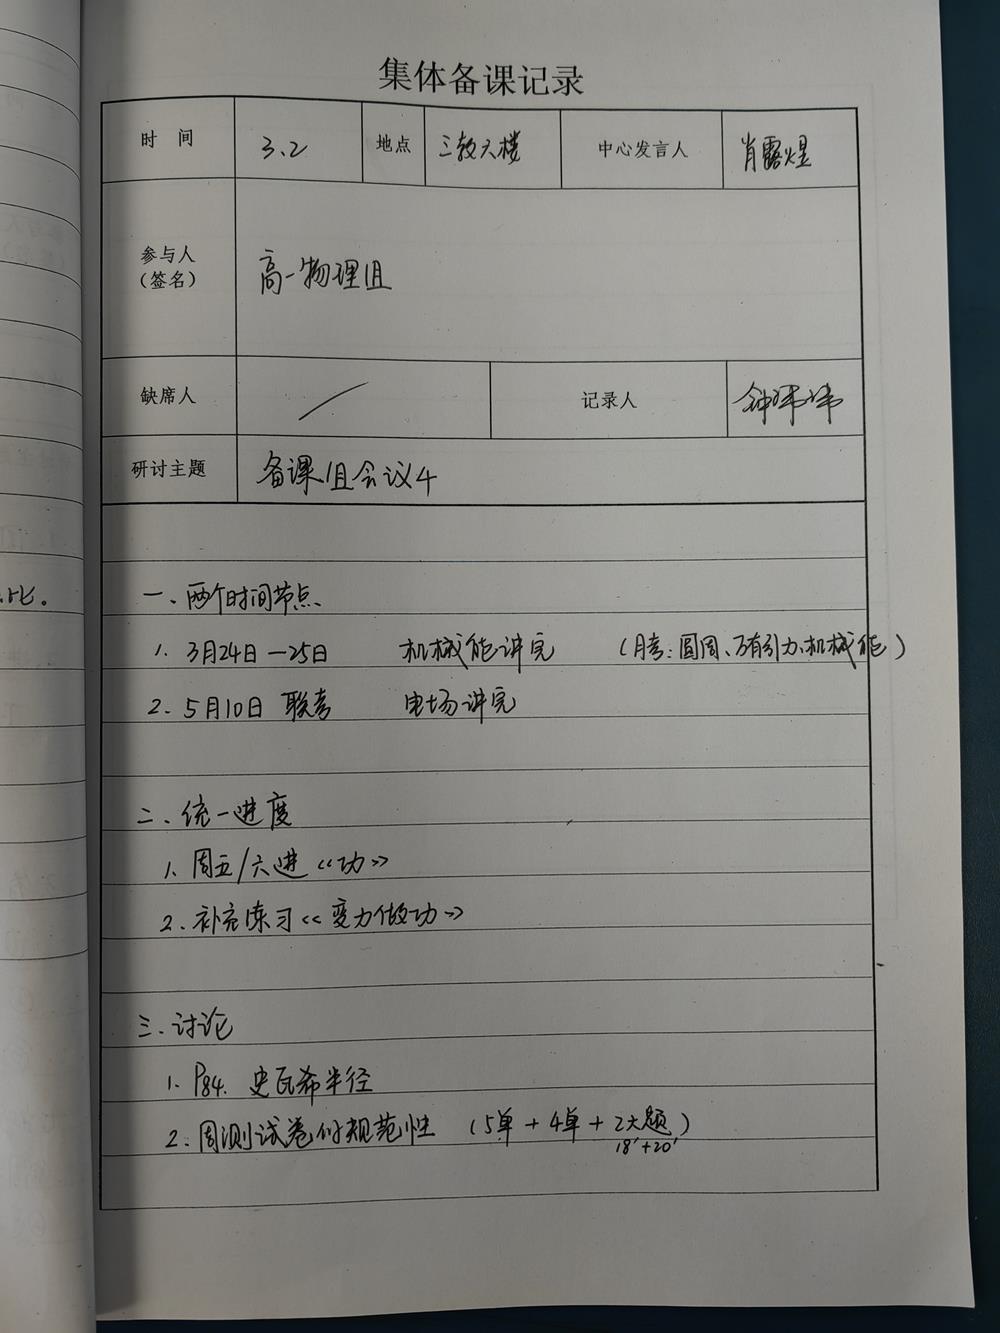 集体备课记录
时 间 3.2 地点 三教大楼 中心发言人 肖露煜
参与人
(签名) 高一物理组
缺席人 / 记录人 钟玮玮
研讨主题 备课组会议4
一、两个时间节点
1. 3月24日—25日 机械能讲完 (月考:圆周、万有引力、机械能)
2. 5月10日 联考 电场讲完
二、统一进度
1. 周五/六进《功》
2. 补充练习《变力做功》
三、讨论
1. P84. 史瓦希半径
2. 周测试卷的规范性 (5单+4单+2大题)
18'+20'
比.